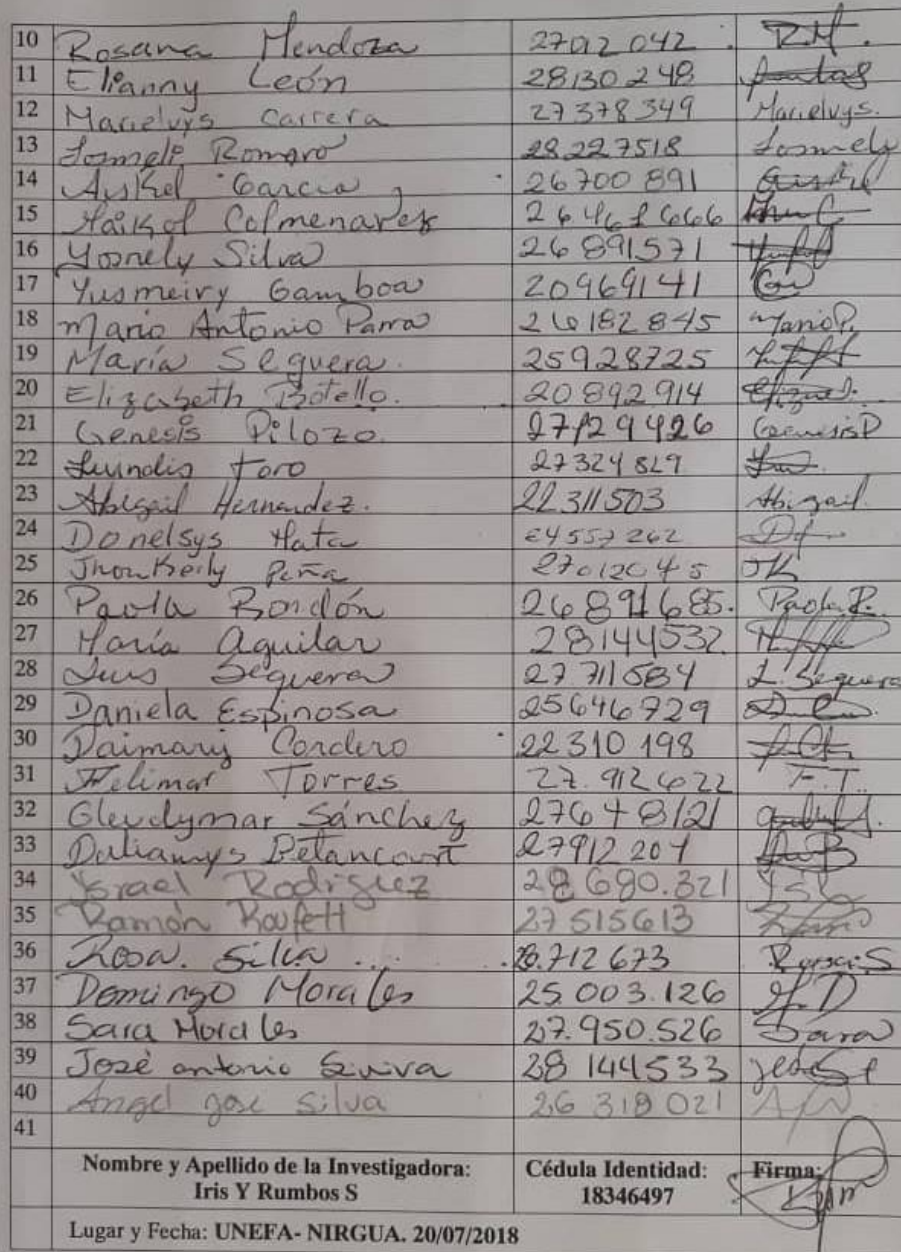 10 Rosana Mendoza 27912042 R.M.
11 Elianny León 28130248
12 Marielvys Carrera 27378349 Marielvys.
13 Romero 28.227518
14 Auskel Garcia 26700891
15 Colmenarez 26461666
16 Yosnely Silva 26891571
17 Yusmeiry Gamboa 20969141
18 Mario Antonio Parra 26182845 Mario P.
19 María Seguera. 25928725
20 Elizabeth Botello. 20892914
21 Genesis Pilozo. 27129426 Genesis P
22 Toro 27324829
23 Abigail Hernandez. 22311503 Abigail.
24 Donelsys Mata 24557262
25 Jhonkeily Peña 27012045 JK
26 Paola Rondón 26891685. Paola R.
27 María Aguilar 28144532
28 Luis Sequera 27711584 L. Sequera
29 Daniela Espinosa 25646729
30 Daimary Cordero 22310198
31 Felimar Torres 27.912622 F.T.
32 Gleudymar Sánchez 27648121
33 Daliannys Betancourt 27912204
34 Israel Rodriguez 28680.321
35 Ramón 27515613
36 Rosa. Silva 712673 Rosa S
37 Domingo Morales 25.003.126
38 Sara Morales 27.950.526 Sara
39 José antonio 28144533
40 Angel jose Silva 26318021
41
Nombre y Apellido de la Investigadora: Cédula Identidad: Firma:
Iris Y Rumbos S 18346497
Lugar y Fecha: UNEFA- NIRGUA. 20/07/2018